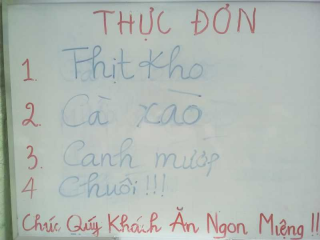 THỰC ĐƠN
1. Thịt Kho
2. Cà xào
3. Canh mướp
4 Chuối!!!
Chúc Quý Khách Ăn Ngon Miệng!!